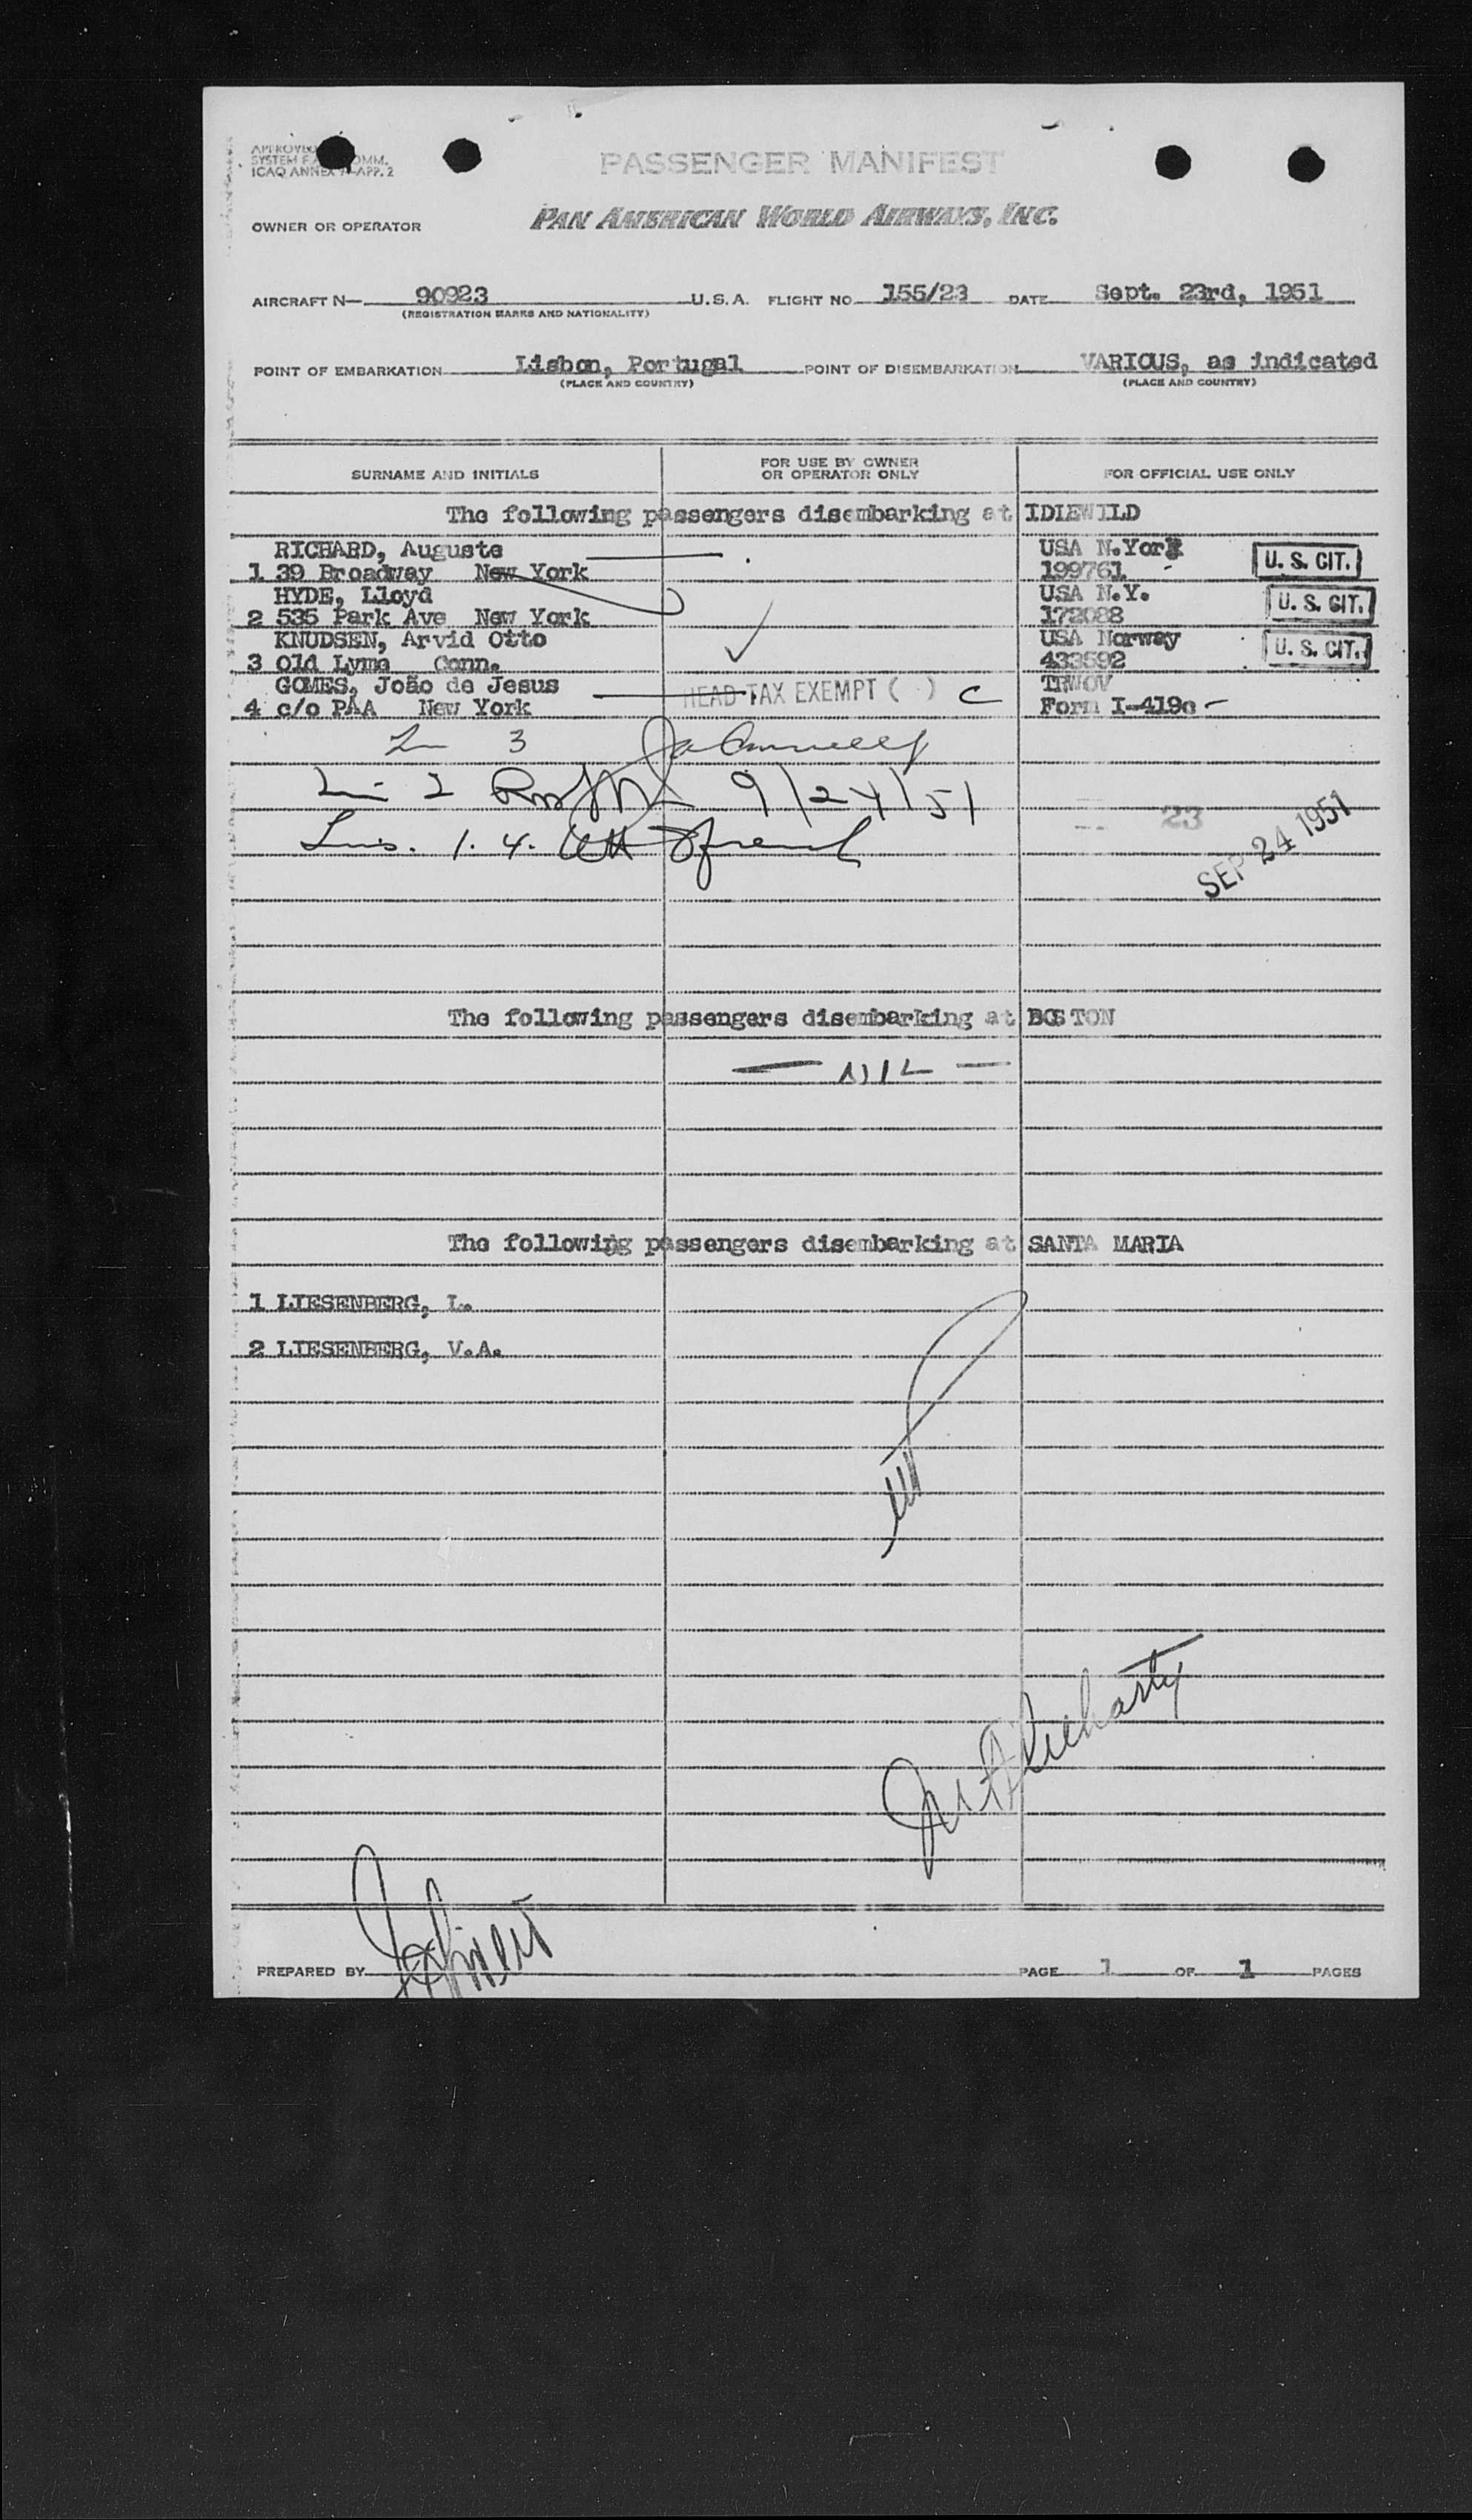 PASSENGER MANIFEST
ICAO ANNEX 9-APP. 2
OWNER OR OPERATOR PAN AMERICAN WORLD AIRWAYS, INC.
AIRCRAFT N— 90923 U.S.A. FLIGHT NO. 155/23 DATE Sept. 23rd, 1951
(REGISTRATION MARKS AND NATIONALITY)
POINT OF EMBARKATION Lisbon, Portugal POINT OF DISEMBARKATION VARIOUS, as indicated
(PLACE AND COUNTRY) (PLACE AND COUNTRY)
SURNAME AND INITIALS FOR USE BY OWNER OR OPERATOR ONLY FOR OFFICIAL USE ONLY
The following passengers disembarking at IDLEWILD
RICHARD, Auguste USA N.York U. S. CIT.
1 39 Broadway New York 199761
HYDE, Lloyd USA N.Y. U. S. CIT.
2 535 Park Ave New York 172088
KNUDSEN, Arvid Otto USA Norway U. S. CIT.
3 Old Lyme Conn. 433592
GOMES, João de Jesus HEAD TAX EXEMPT ( ) C TRWOV
4 c/o PAA New York Form I-419c
3
2 9/24/51
23
1. 4.
SEP 24 1951
The following passengers disembarking at BOSTON
— NIL —
The following passengers disembarking at SANTA MARIA
1 LIESENBERG, L.
2 LIESENBERG, V.A.
PREPARED BY PAGE 1 OF 1 PAGES